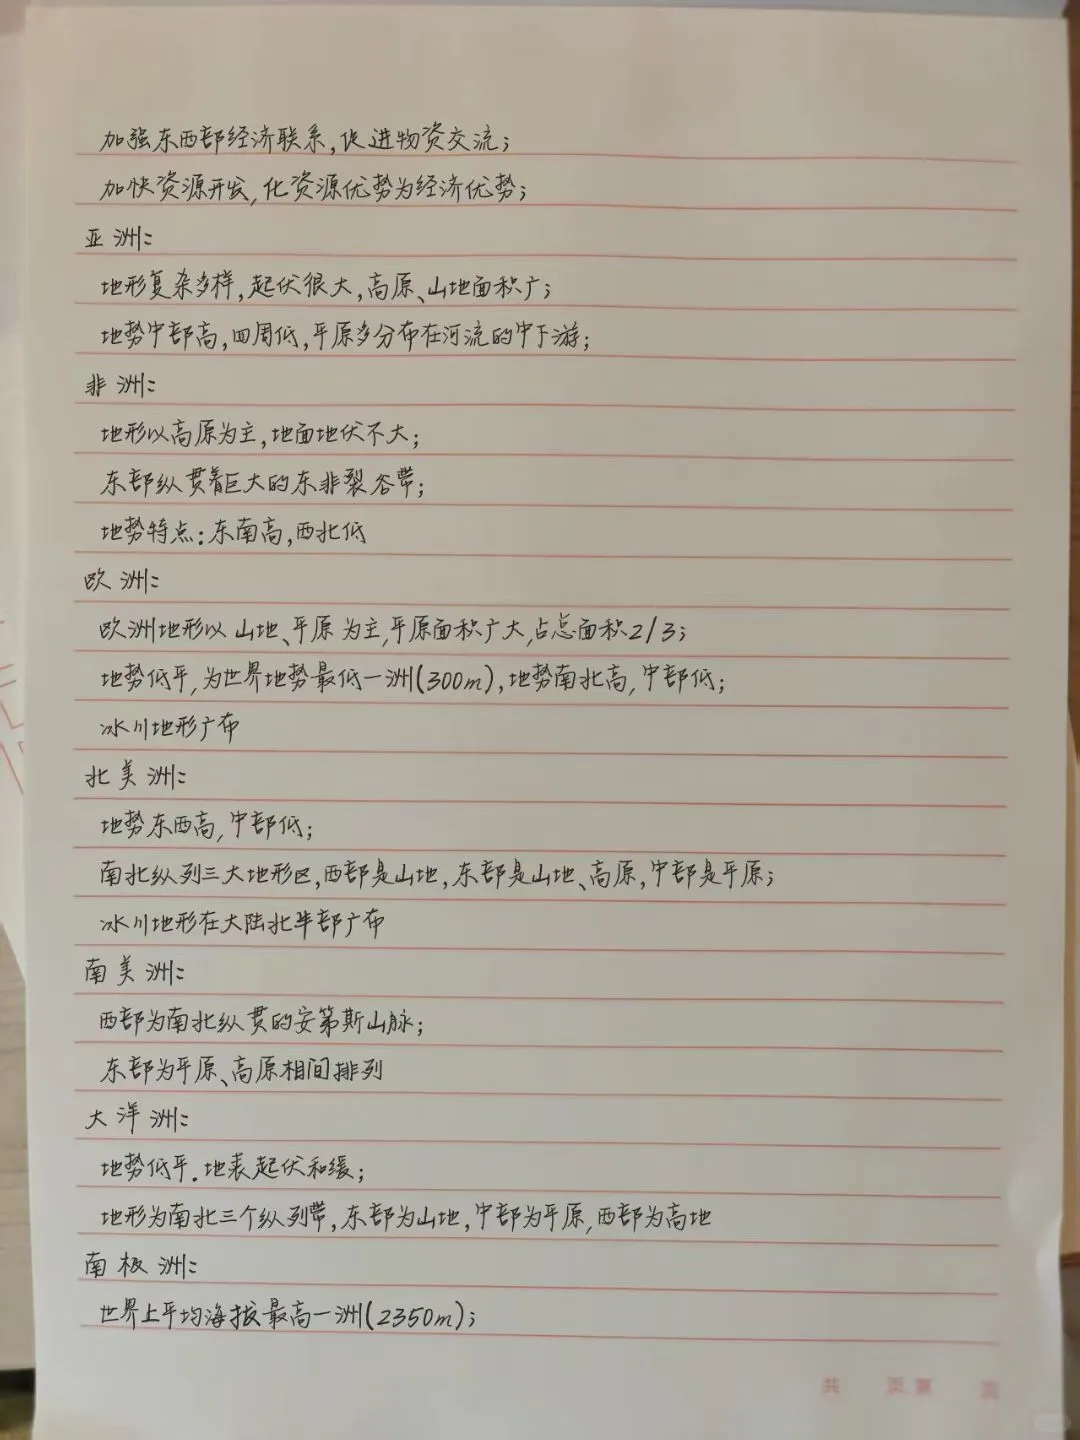 加强东西部经济联系,促进物资交流;
加快资源开发,化资源优势为经济优势;
亚洲:
地形复杂多样,起伏很大,高原、山地面积广;
地势中部高,四周低,平原多分布在河流的中下游;
非洲:
地形以高原为主,地面地伏不大;
东部纵贯着巨大的东非裂谷带;
地势特点:东南高,西北低
欧洲:
欧洲地形以山地、平原为主,平原面积广大,占总面积2/3;
地势低平,为世界地势最低一洲(300m),地势南北高,中部低;
冰川地形广布
北美洲:
地势东西高,中部低;
南北纵列三大地形区,西部是山地,东部是山地、高原,中部是平原;
冰川地形在大陆北半部广布
南美洲:
西部为南北纵贯的安第斯山脉;
东部为平原、高原相间排列
大洋洲:
地势低平.地表起伏和缓;
地形为南北三个纵列带,东部为山地,中部为平原,西部为高地
南极洲:
世界上平均海拔最高一洲(2350m);
共 页 第 页